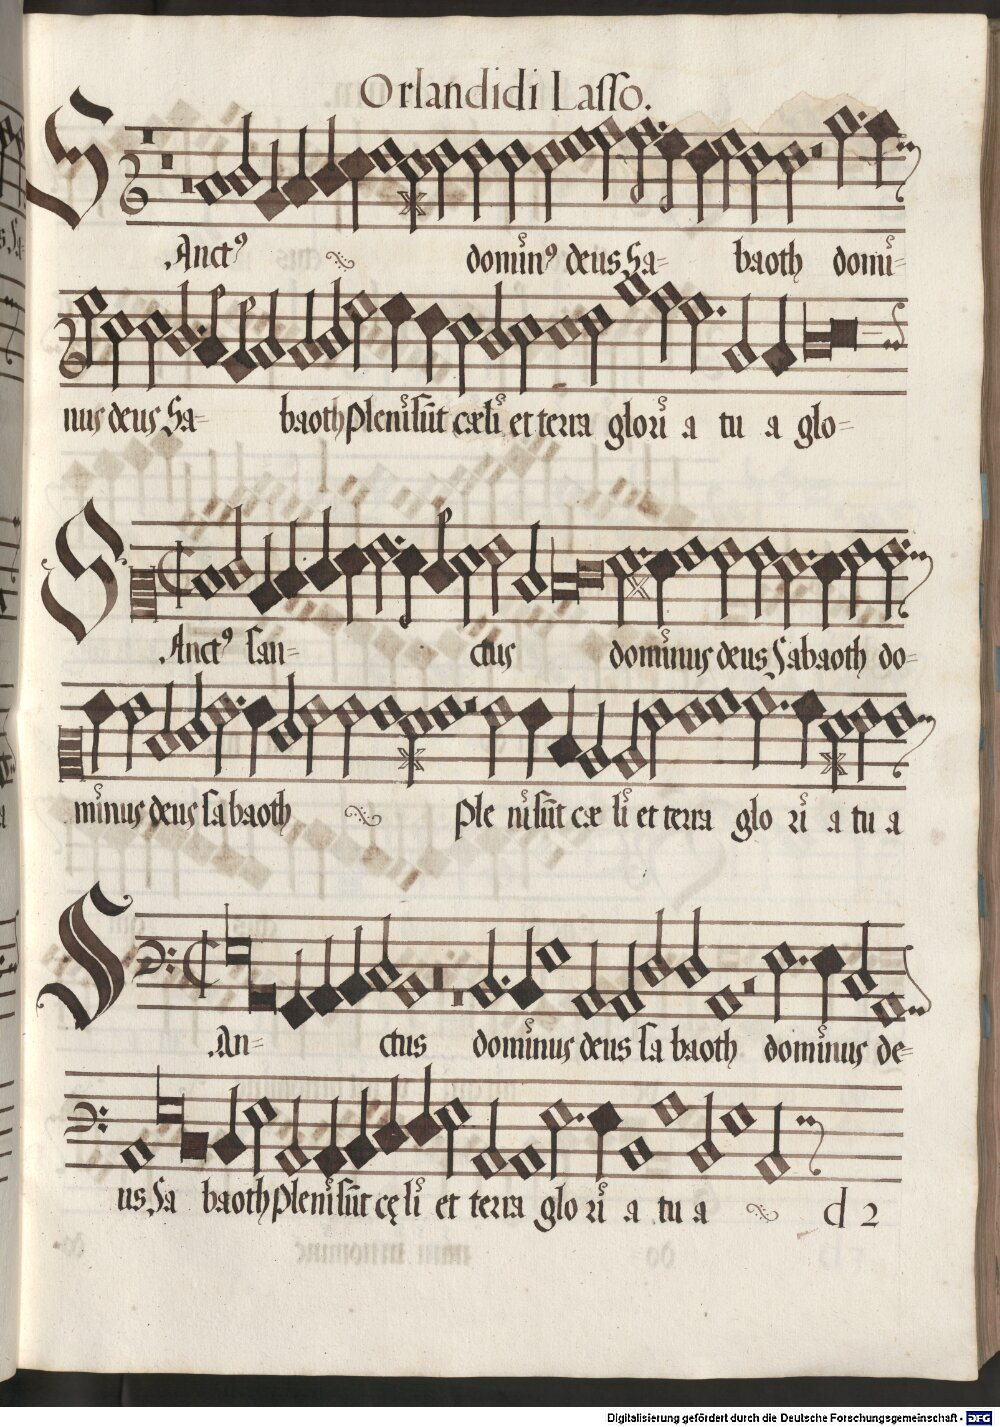 Orlandi di Lasso.
Sanctꝰ dominꝰ deus Sa= baoth domi=
nus deus Sa= baoth Pleni sūt cæli et terra glori a tu a glo=
Sanctꝰ san= ctus dominus deus Sabaoth do=
minus deus sabaoth Ple ni sūt cæ li et terra glo ri a tu a
San= ctus dominus deus sa baoth dominus de=
us Sa baoth Pleni sūt cę li et terra glo ri a tu a d 2
Digitalisierung gefördert durch die Deutsche Forschungsgemeinschaft - DFG